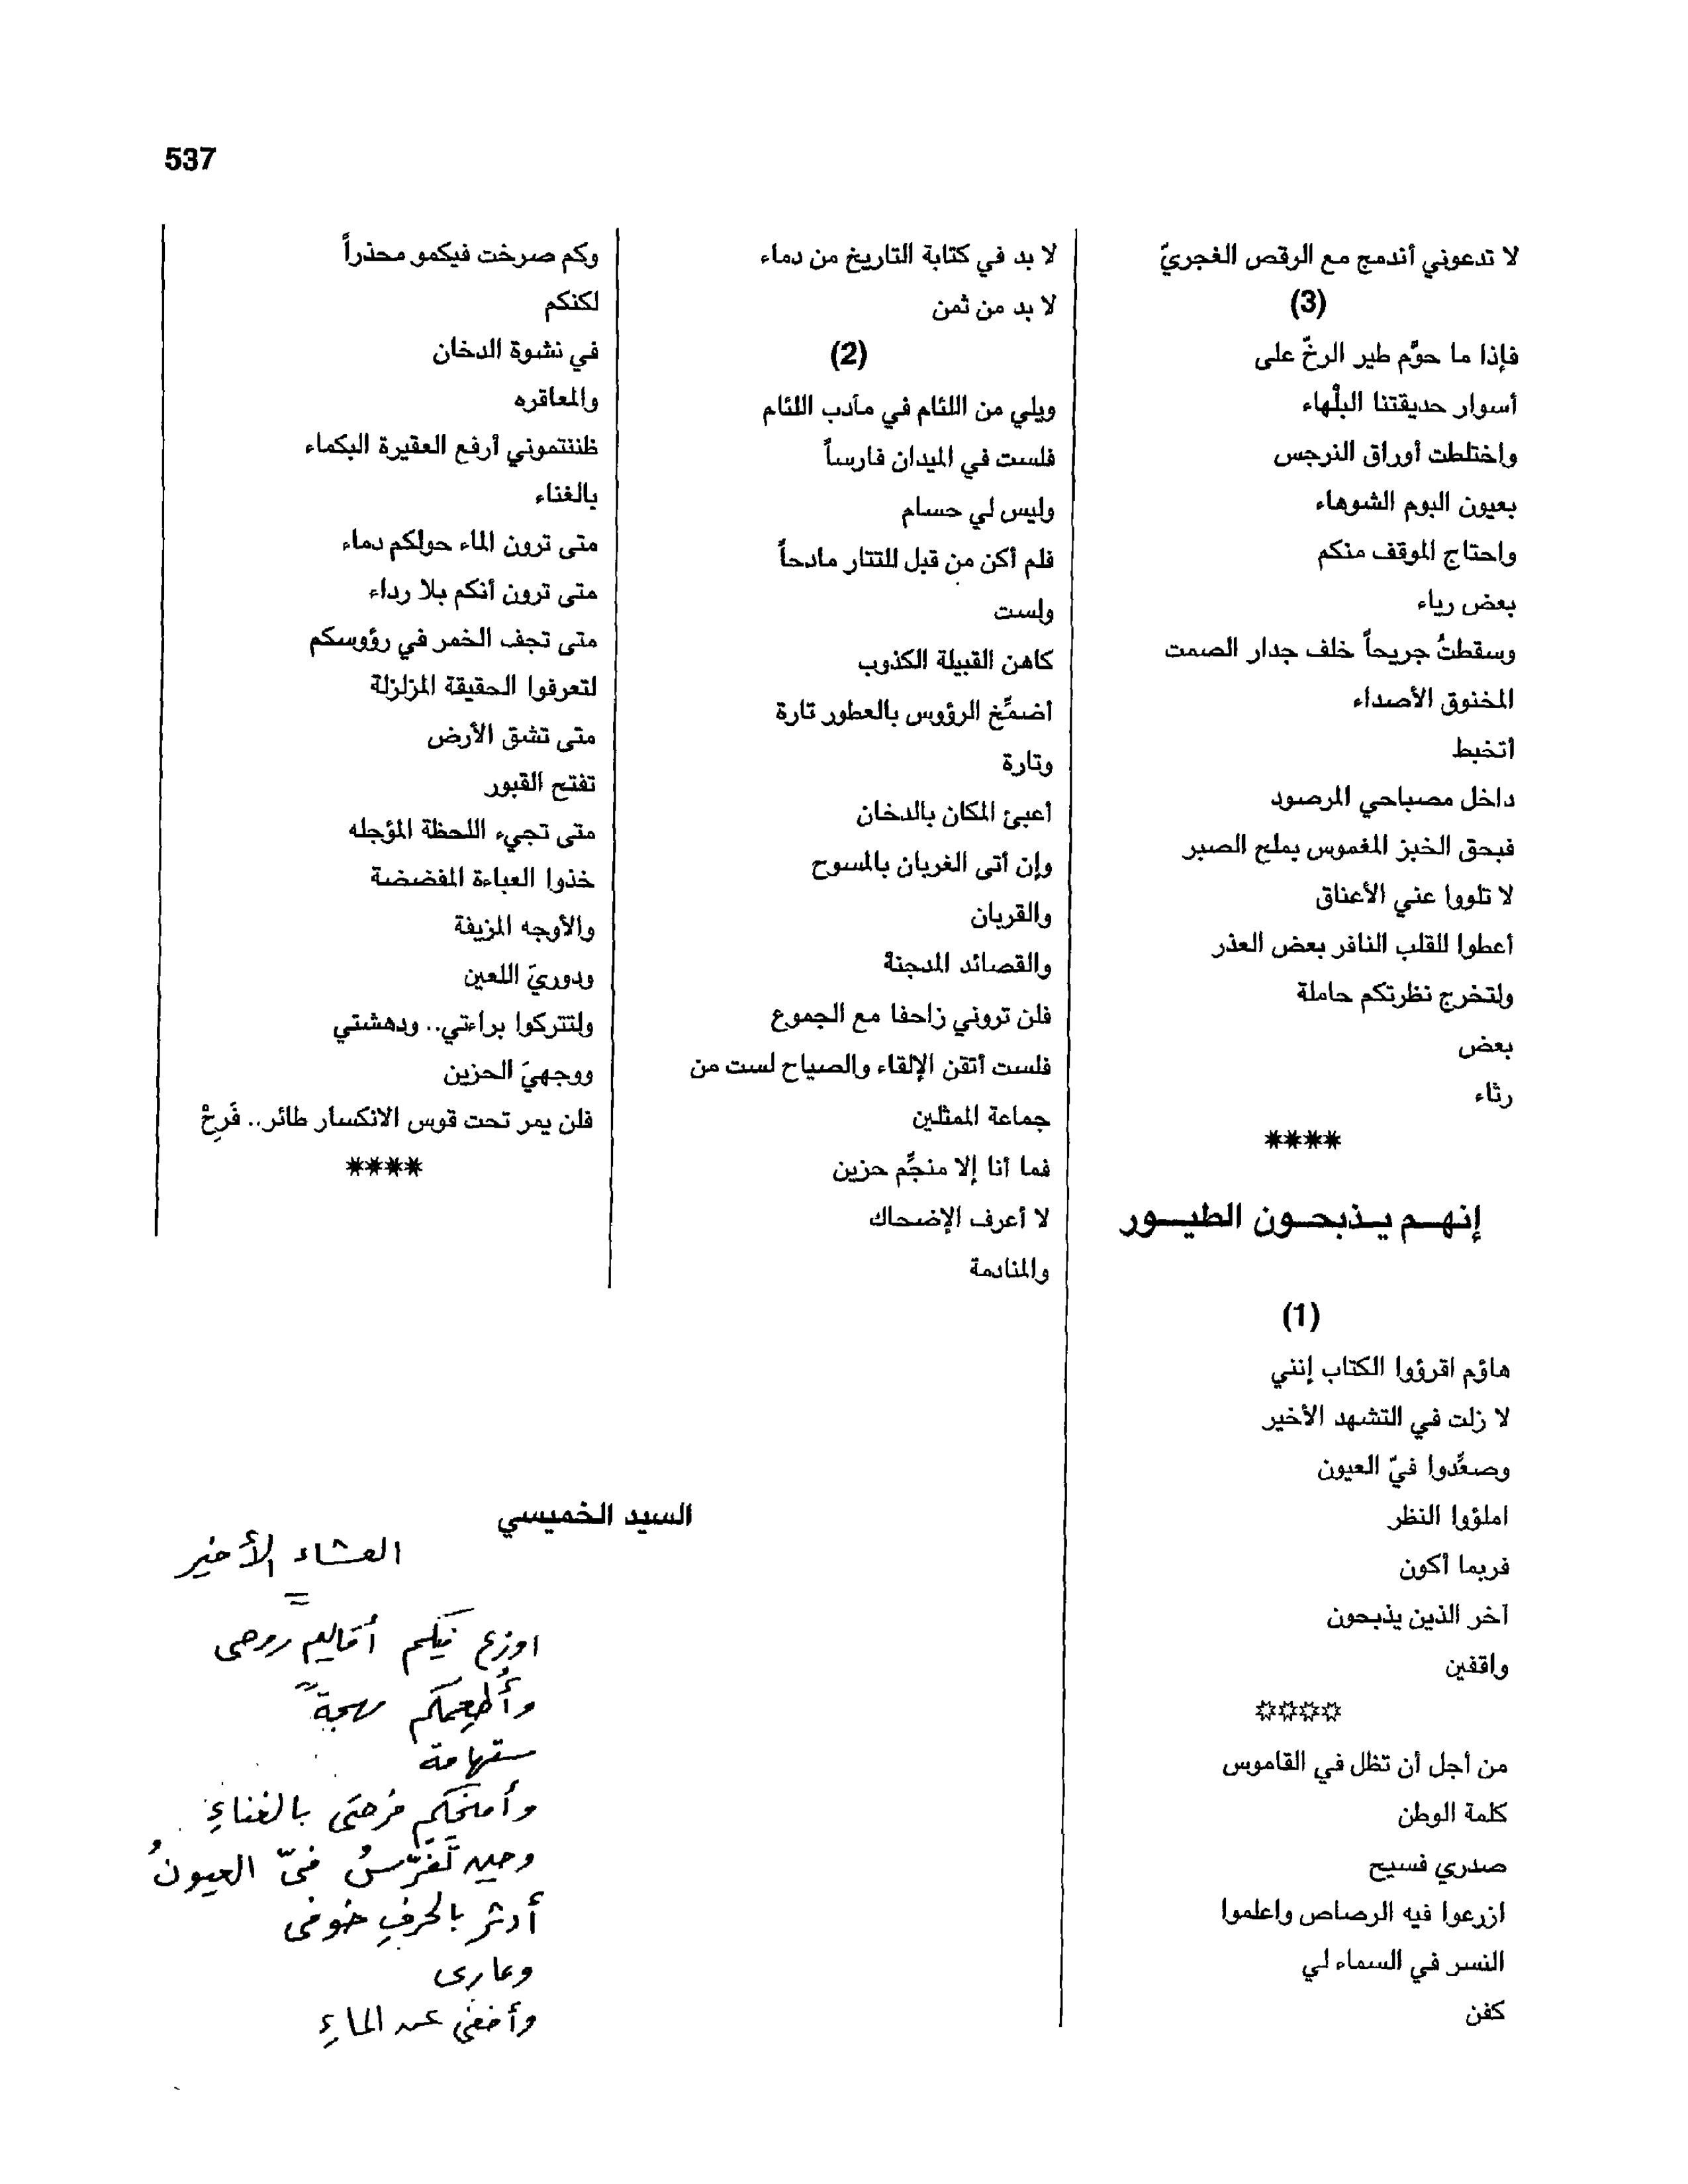 537
لا تدعوني أندمج مع الرقص الغجريّ
(3)
فإذا ما حوَّم طير الرخّ على
أسوار حديقتنا البلْهاء
واختلطت أوراق النرجس
بعيون البوم الشوهاء
واحتاج الموقف منكم
بعض رياء
وسقطتُ جريحاً خلف جدار الصمت
المخنوق الأصداء
أتخبط
داخل مصباحي المرصود
فبحق الخبز المغموس بملح الصبر
لا تلووا عني الأعناق
أعطوا للقلب النافر بعض العذر
ولتخرج نظرتكم حاملة
بعض
رثاء
****
إنهـم يـذبحـون الطيـور
(1)
هاؤم اقرؤوا الكتاب إنني
لا زلت في التشهد الأخير
وصعِّدوا فيّ العيون
املؤوا النظر
فربما أكون
آخر الذين يذبحون
واقفين
****
من أجل أن تظل في القاموس
كلمة الوطن
صدري فسيح
ازرعوا فيه الرصاص واعلموا
النسر في السماء لي
كفن
لا بد في كتابة التاريخ من دماء
لا بد من ثمن
(2)
ويلي من اللئام في مآدب اللئام
فلست في الميدان فارساً
وليس لي حسام
فلم أكن من قبل للتتار مادحاً
ولست
كاهن القبيلة الكذوب
أضمِّخ الرؤوس بالعطور تارة
وتارة
أعبئ المكان بالدخان
وإن أتى الغربان بالمسوح
والقربان
والقصائد المدجنهْ
فلن تروني زاحفا مع الجموع
فلست أتقن الإلقاء والصياح لست من
جماعة الممثلين
فما أنا إلا منجِّم حزين
لا أعرف الإضحاك
والمنادمة
وكم صرخت فيكمو محذراً
لكنكم
في نشوة الدخان
والمعاقره
ظننتموني أرفع العقيرة البكماء
بالغناء
متى ترون الماء حولكم دماء
متى ترون أنكم بلا رداء
متى تجف الخمر في رؤوسكم
لتعرفوا الحقيقة المزلزلة
متى تشق الأرض
تفتح القبور
متى تجيء اللحظة المؤجله
خذوا العباءة المفضضة
والأوجه المزيفة
ودوريَ اللعين
ولتتركوا براءتي.. ودهشتي
ووجهيَ الحزين
فلن يمر تحت قوس الانكسار طائر.. فَرِحْ
****
السيد الخميسي
العشاء الأخير
اوزع فيكم أقاليم روحى
وأُطعِمكم مهجةً
مستهامة
وأمنحكم فرحتى بالغناءِ
وحين تَفَرَّسُ فىّ العيونُ
أدثر بالحرفِ خوفى
وعارى
وأخفى عن الماءِ